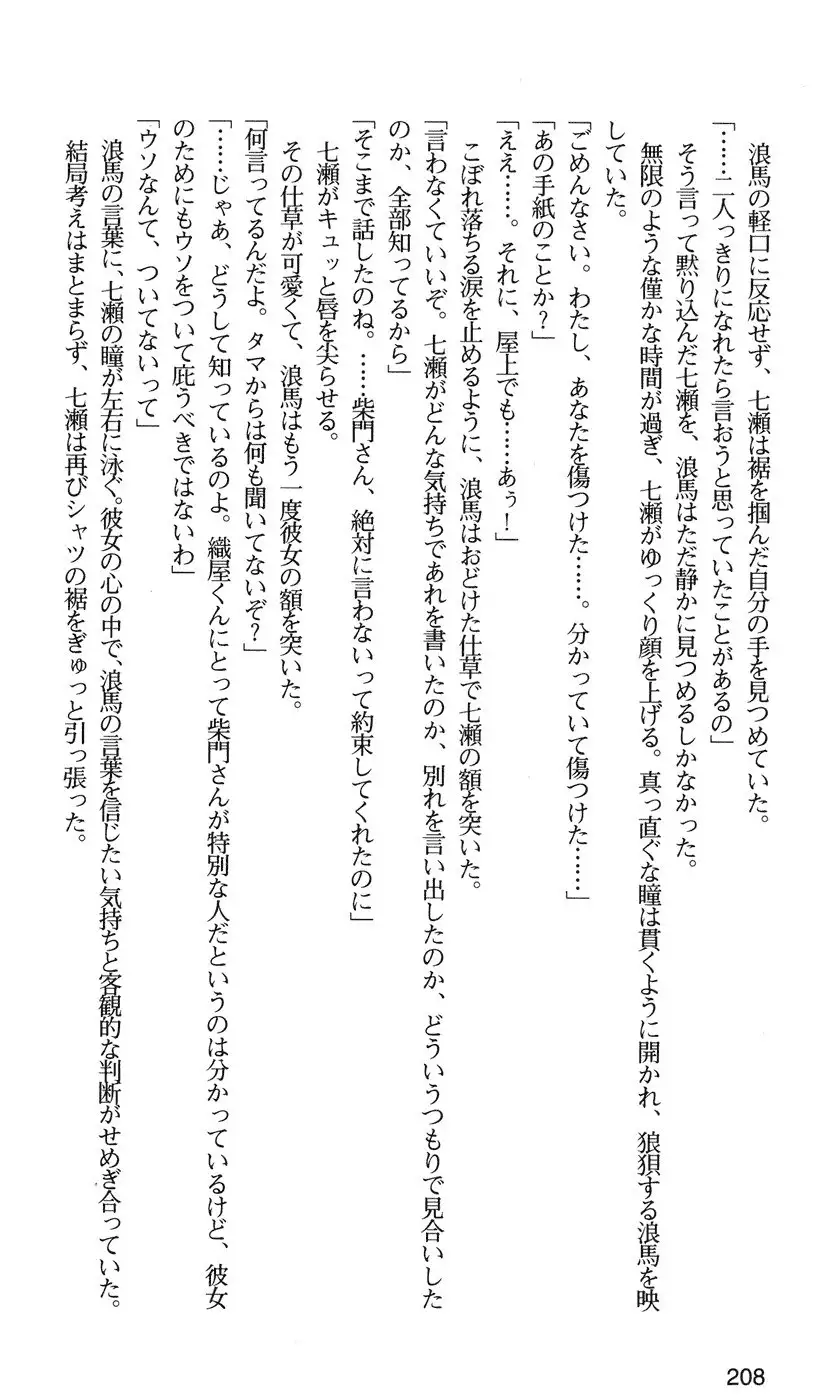 浪馬の軽口に反応せず、七瀬は裾を掴んだ自分の手を見つめていた。
「……二人っきりになれたら言おうと思っていたことがあるの」
そう言って黙り込んだ七瀬を、浪馬はただ静かに見つめるしかなかった。
無限のような僅かな時間が過ぎ、七瀬がゆっくり顔を上げる。真っ直ぐな瞳は貫くように開かれ、狼狽する浪馬を映
していた。
「ごめんなさい。わたし、あなたを傷つけた……。分かっていて傷つけた……」
「あの手紙のことか？」
「ええ……。それに、屋上でも……あぅ！」
こぼれ落ちる涙を止めるように、浪馬はおどけた仕草で七瀬の額を突いた。
「言わなくていいぞ。七瀬がどんな気持ちであれを書いたのか、別れを言い出したのか、どういうつもりで見合いした
のか、全部知ってるから」
「そこまで話したのね。……柴門さん、絶対に言わないって約束してくれたのに」
七瀬がキュッと唇を尖らせる。
その仕草が可愛くて、浪馬はもう一度彼女の額を突いた。
「何言ってるんだよ。タマからは何も聞いてないぞ？」
「……じゃあ、どうして知っているのよ。織屋くんにとって柴門さんが特別な人だというのは分かっているけど、彼女
のためにもウソをついて庇うべきではないわ」
「ウソなんて、ついてないって」
浪馬の言葉に、七瀬の瞳が左右に泳ぐ。彼女の心の中で、浪馬の言葉を信じたい気持ちと客観的な判断がせめぎ合っていた。
結局考えはまとまらず、七瀬は再びシャツの裾をぎゅっと引っ張った。
208